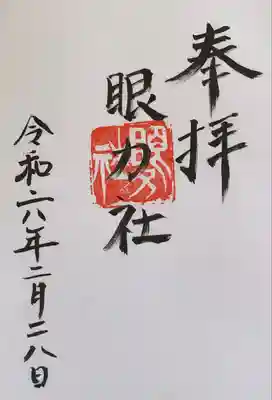 奉拝
眼力社
令和六年二月二八日